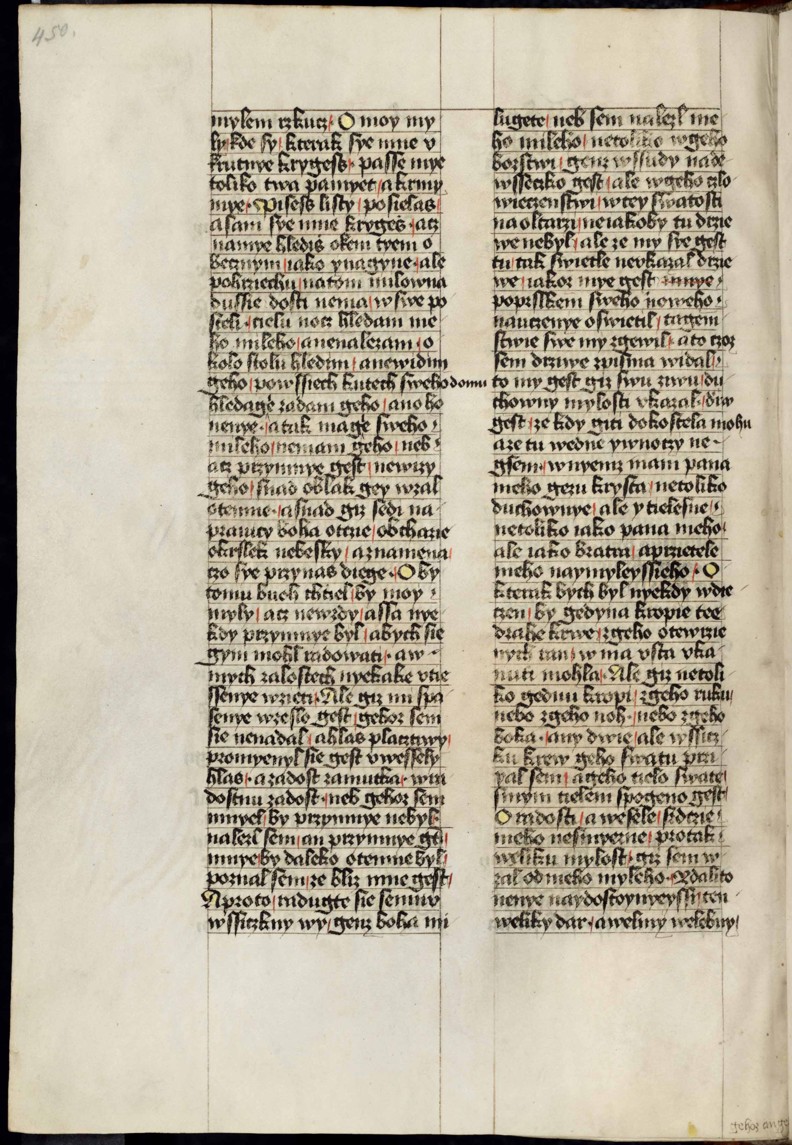 450.
mylem rzkucz· O moy my
ly kde sy kterak sye mne v
krutnye krygess· passe mye
toliko twa pamyet a krmy
mye· Pisess listy posielas
a sam sye mne kryges· acz
namye hledis okem twem o
becznym iako ynagyne· ale
pohrziechu natom milowna
dussie dosti nema w swe po
steli tielu nocz hledam me
ho mileho a nenalezam o
kolo stolu hledim a newidim
geho powssiech kutech sweho domu
hledage zadam geho ano ho
nenye· a tak mage sweho
mileho nemam geho neb
acz przymnye gest newizy
geho snad oblak gey wzal
otemne· a snad giz sedi na
prawicy boha otcze obcharie
okrslek nebesky a znamena
czo sye przynas diege· O by
tomu buoh chtiel by moy
myly acz newzdy assa nye
kdy przymnye byl abych sie
gym mohl radowati· a w
mych zalostech nyekake vtie
ssenye wzieti· Ale giz mi spa
senye wzeslo gest gehoz sem
sie nenadal a hlas placztiwy
promyenyl sie gest vwessely
hlas· a radost zamutka· win
dostnu radost· neb gehoz sem
mnyel by przymnye nebyl
nalezl sem an przymnye gt
mnye by daleko otemne byl
poznal sem ze bliz mne gest
A proto radugte sie semnu
wssiczkny wy genz boha mi
lugete neb sem nalezl me
ho mileho netoliko wgeho
bozstwi genz wssudy nade
wsseczko gest ale wgeho czlo
wieczenstwi w tey swatosti
na oltarzi ne iakoby tu drzie
we nebyl ale ze my sye gest
tu tak swietle nevkazal drzie
we iakoz mye gest nynye
poprslkem sweho noweho
nauczenye oswietil tagem
stwie swe my zgewil a to czoz
sem drziwe zpisma widal
to my gest giz swu zywu du
chowny mylosti vkazal· diw
gest ze kdy giti dokostela mohu
a ze tu wedne ywnoczy ne
gsem· wnyemz mam pana
meho gezu krysta netoliko
duchownye ale y tielesne
netoliko iako pana meho
ale iako bratra a przietele
meho naymyleyssieho· O
kterak bych byl nyekdy wdie
czen by gedyna kropie tee
drahe krwe zgeho otewrzie
nych ran w ma vsta vka
nuti mohla· Ale giz netoli
ko gednu kropi zgeho ruku
nebo zgeho noh· nebo zgeho
boka· any dwie ale wssicz
ku krew geho swatu przi
yal sem a geho tielo swate
smym tielem spogeno gest
O radosti a wesele srdczie
meho nesmyerne protak
weliku mylost giz sem w
zal od meho myleho· Oda lito
nenye naydostoynyeyssi ten
weliky dar a weliny welebny
gehoz an ge